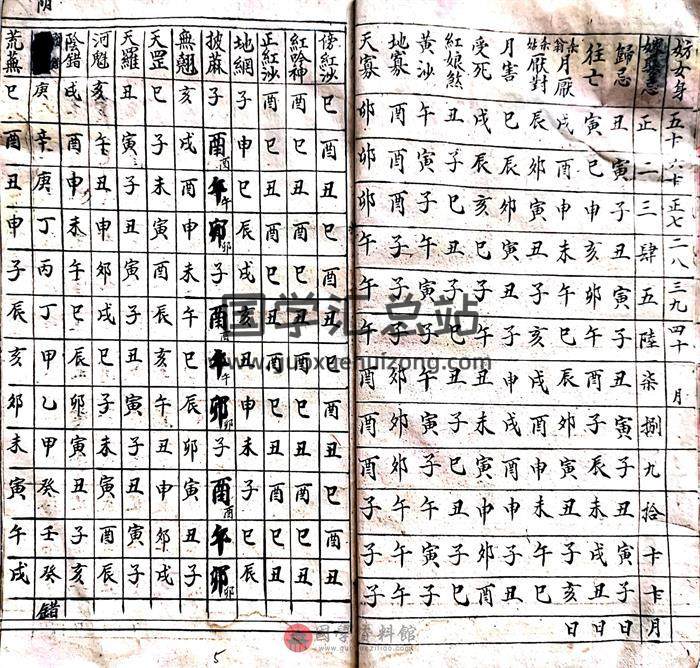 妨女身 五十 六十 正七 二八 三九 四十 月
正二三肆五陸柒捌九拾十十月
歸忌 丑寅子丑寅子丑寅子丑寅子日
往亡 寅巳申亥卯午酉子辰未戌丑日
翁月厭 戌酉申未午巳辰卯寅丑子亥日
姑厭對 辰卯寅丑子亥戌酉申未午巳
月害 巳辰卯寅丑子
受死 戌辰亥巳子午丑未寅申卯酉
紅娘煞 丑子巳丑子巳丑子巳丑子巳
黃沙 午寅子午寅子午寅子午寅子
地寡 酉酉酉子子子卯卯卯午午午
天寡 卯卯卯午午午酉酉酉子子子
傍紅沙 巳酉丑巳酉丑巳酉丑巳酉丑
紅吟神 酉巳丑酉巳丑酉巳丑酉巳丑
正紅沙 酉巳丑酉巳丑酉巳丑酉巳丑
地網 子申巳辰戌亥丑申巳子巳辰
披蔴 子酉午卯子酉午卯子酉午卯
無翹 亥戌酉申未午巳辰卯寅丑子
天罡 巳子未寅酉辰亥午丑申卯戌
天羅 丑寅子丑寅子丑寅子丑寅子
河魁 亥午丑申卯戌巳子未寅酉辰
陰錯 戌酉申未午巳辰卯寅丑子亥
庚辛庚丁丙丁甲乙甲癸壬癸錯
荒蕪 巳酉丑申子辰亥卯未寅午戌
5
国学汇总站
www.guoxuehuizong.com
國學資料館